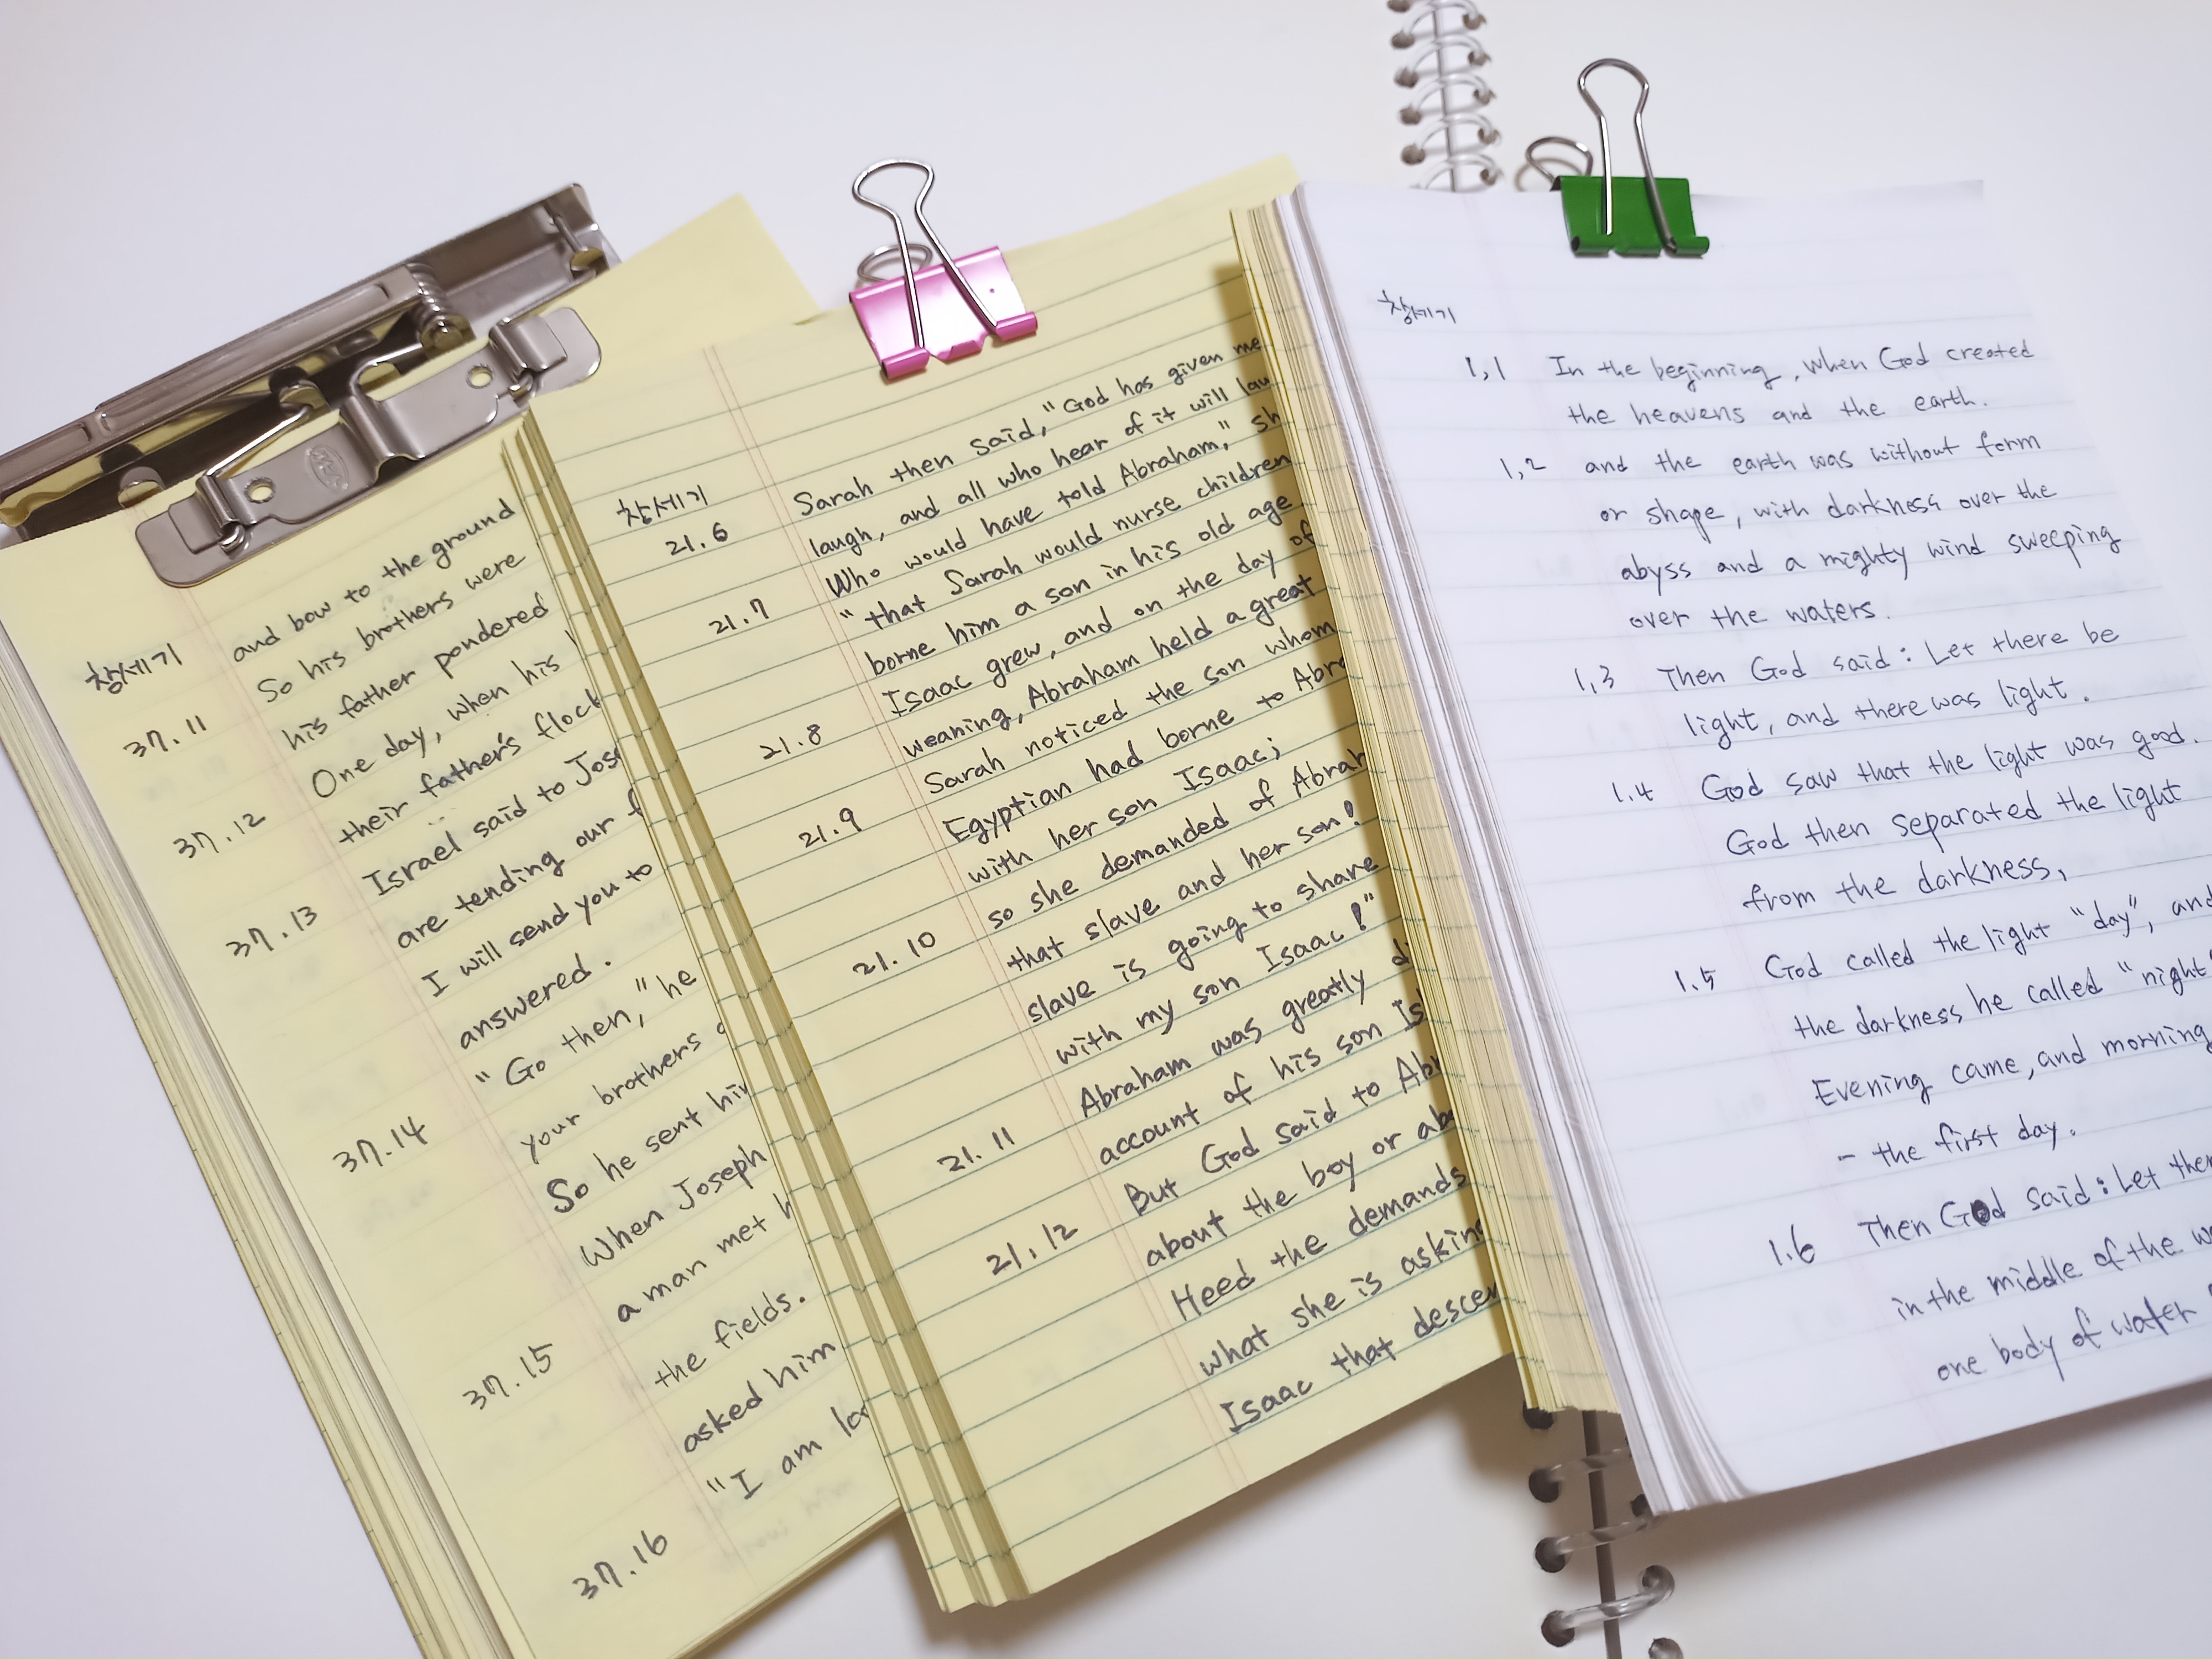 창세기
and bow to the ground
37.11 So his brothers were
his father pondered
37.12 One day, when his
their father's flock
37.13 Israel said to Jos
are tending our f
I will send you to
answered.
37.14 "Go then," he
your brothers
So he sent him
37.15 When Joseph
a man met h
the fields.
asked him
37.16 "I am lo
창세기
21.6 Sarah then said, "God has given me
laugh, and all who hear of it will lau
21.7 Who would have told Abraham," sh
"that Sarah would nurse children
borne him a son in his old age
21.8 Isaac grew, and on the day of
weaning, Abraham held a great
21.9 Sarah noticed the son whom
Egyptian had borne to Abra
with her son Isaac;
21.10 so she demanded of Abrah
that slave and her son!
slave is going to share
with my son Isaac!"
21.11 Abraham was greatly di
account of his son Is
21.12 But God said to Abr
about the boy or ab
Heed the demands
what she is askin
Isaac that descen
창세기
1,1 In the beginning, when God created
the heavens and the earth.
1,2 and the earth was without form
or shape, with darkness over the
abyss and a mighty wind sweeping
over the waters.
1,3 Then God said: Let there be
light, and there was light.
1.4 God saw that the light was good.
God then separated the light
from the darkness,
1.5 God called the light "day", and
the darkness he called "night"
Evening came, and morning
- the first day.
1.6 Then God said: Let ther
in the middle of the w
one body of water